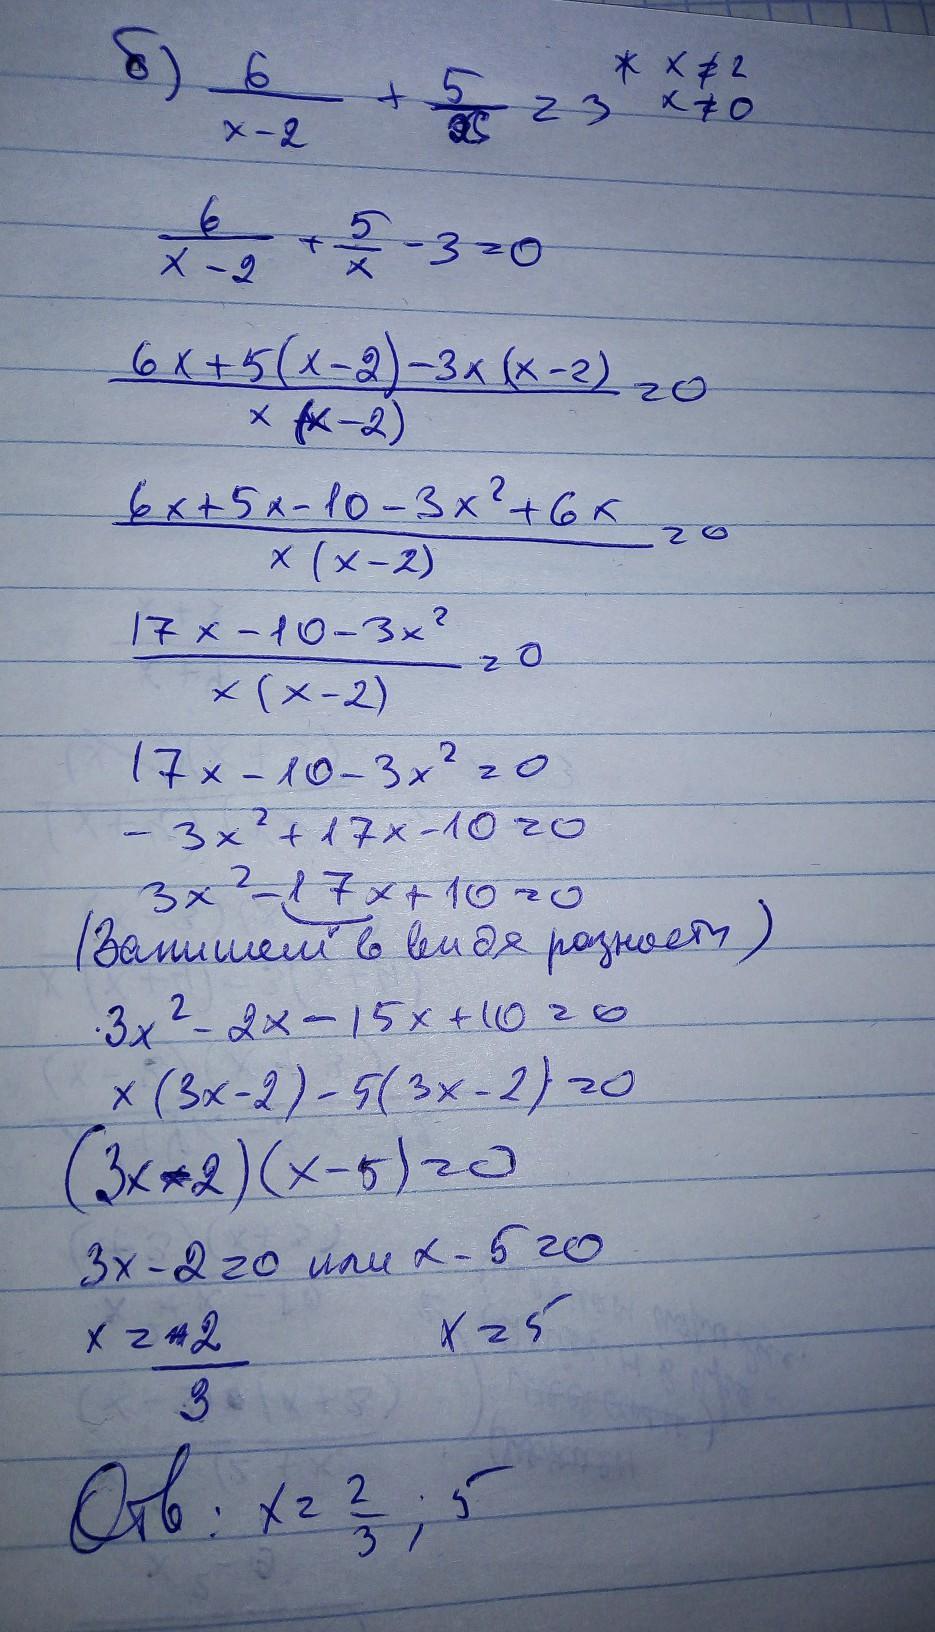 б) 6/(x-2) + 5/x = 3 * x ≠ 2
x ≠ 0
6/(x-2) + 5/x - 3 = 0
(6x+5(x-2)-3x(x-2))/(x(x-2)) = 0
(6x+5x-10-3x²+6x)/(x(x-2)) = 0
(17x-10-3x²)/(x(x-2)) = 0
17x-10-3x² = 0
-3x²+17x-10=0
3x²-17x+10=0
(Запишем в виде разности)
3x²-2x-15x+10=0
x(3x-2)-5(3x-2)=0
(3x-2)(x-5)=0
3x-2=0 или x-5=0
x = 2/3 x=5
Отв: x= 2/3 ; 5